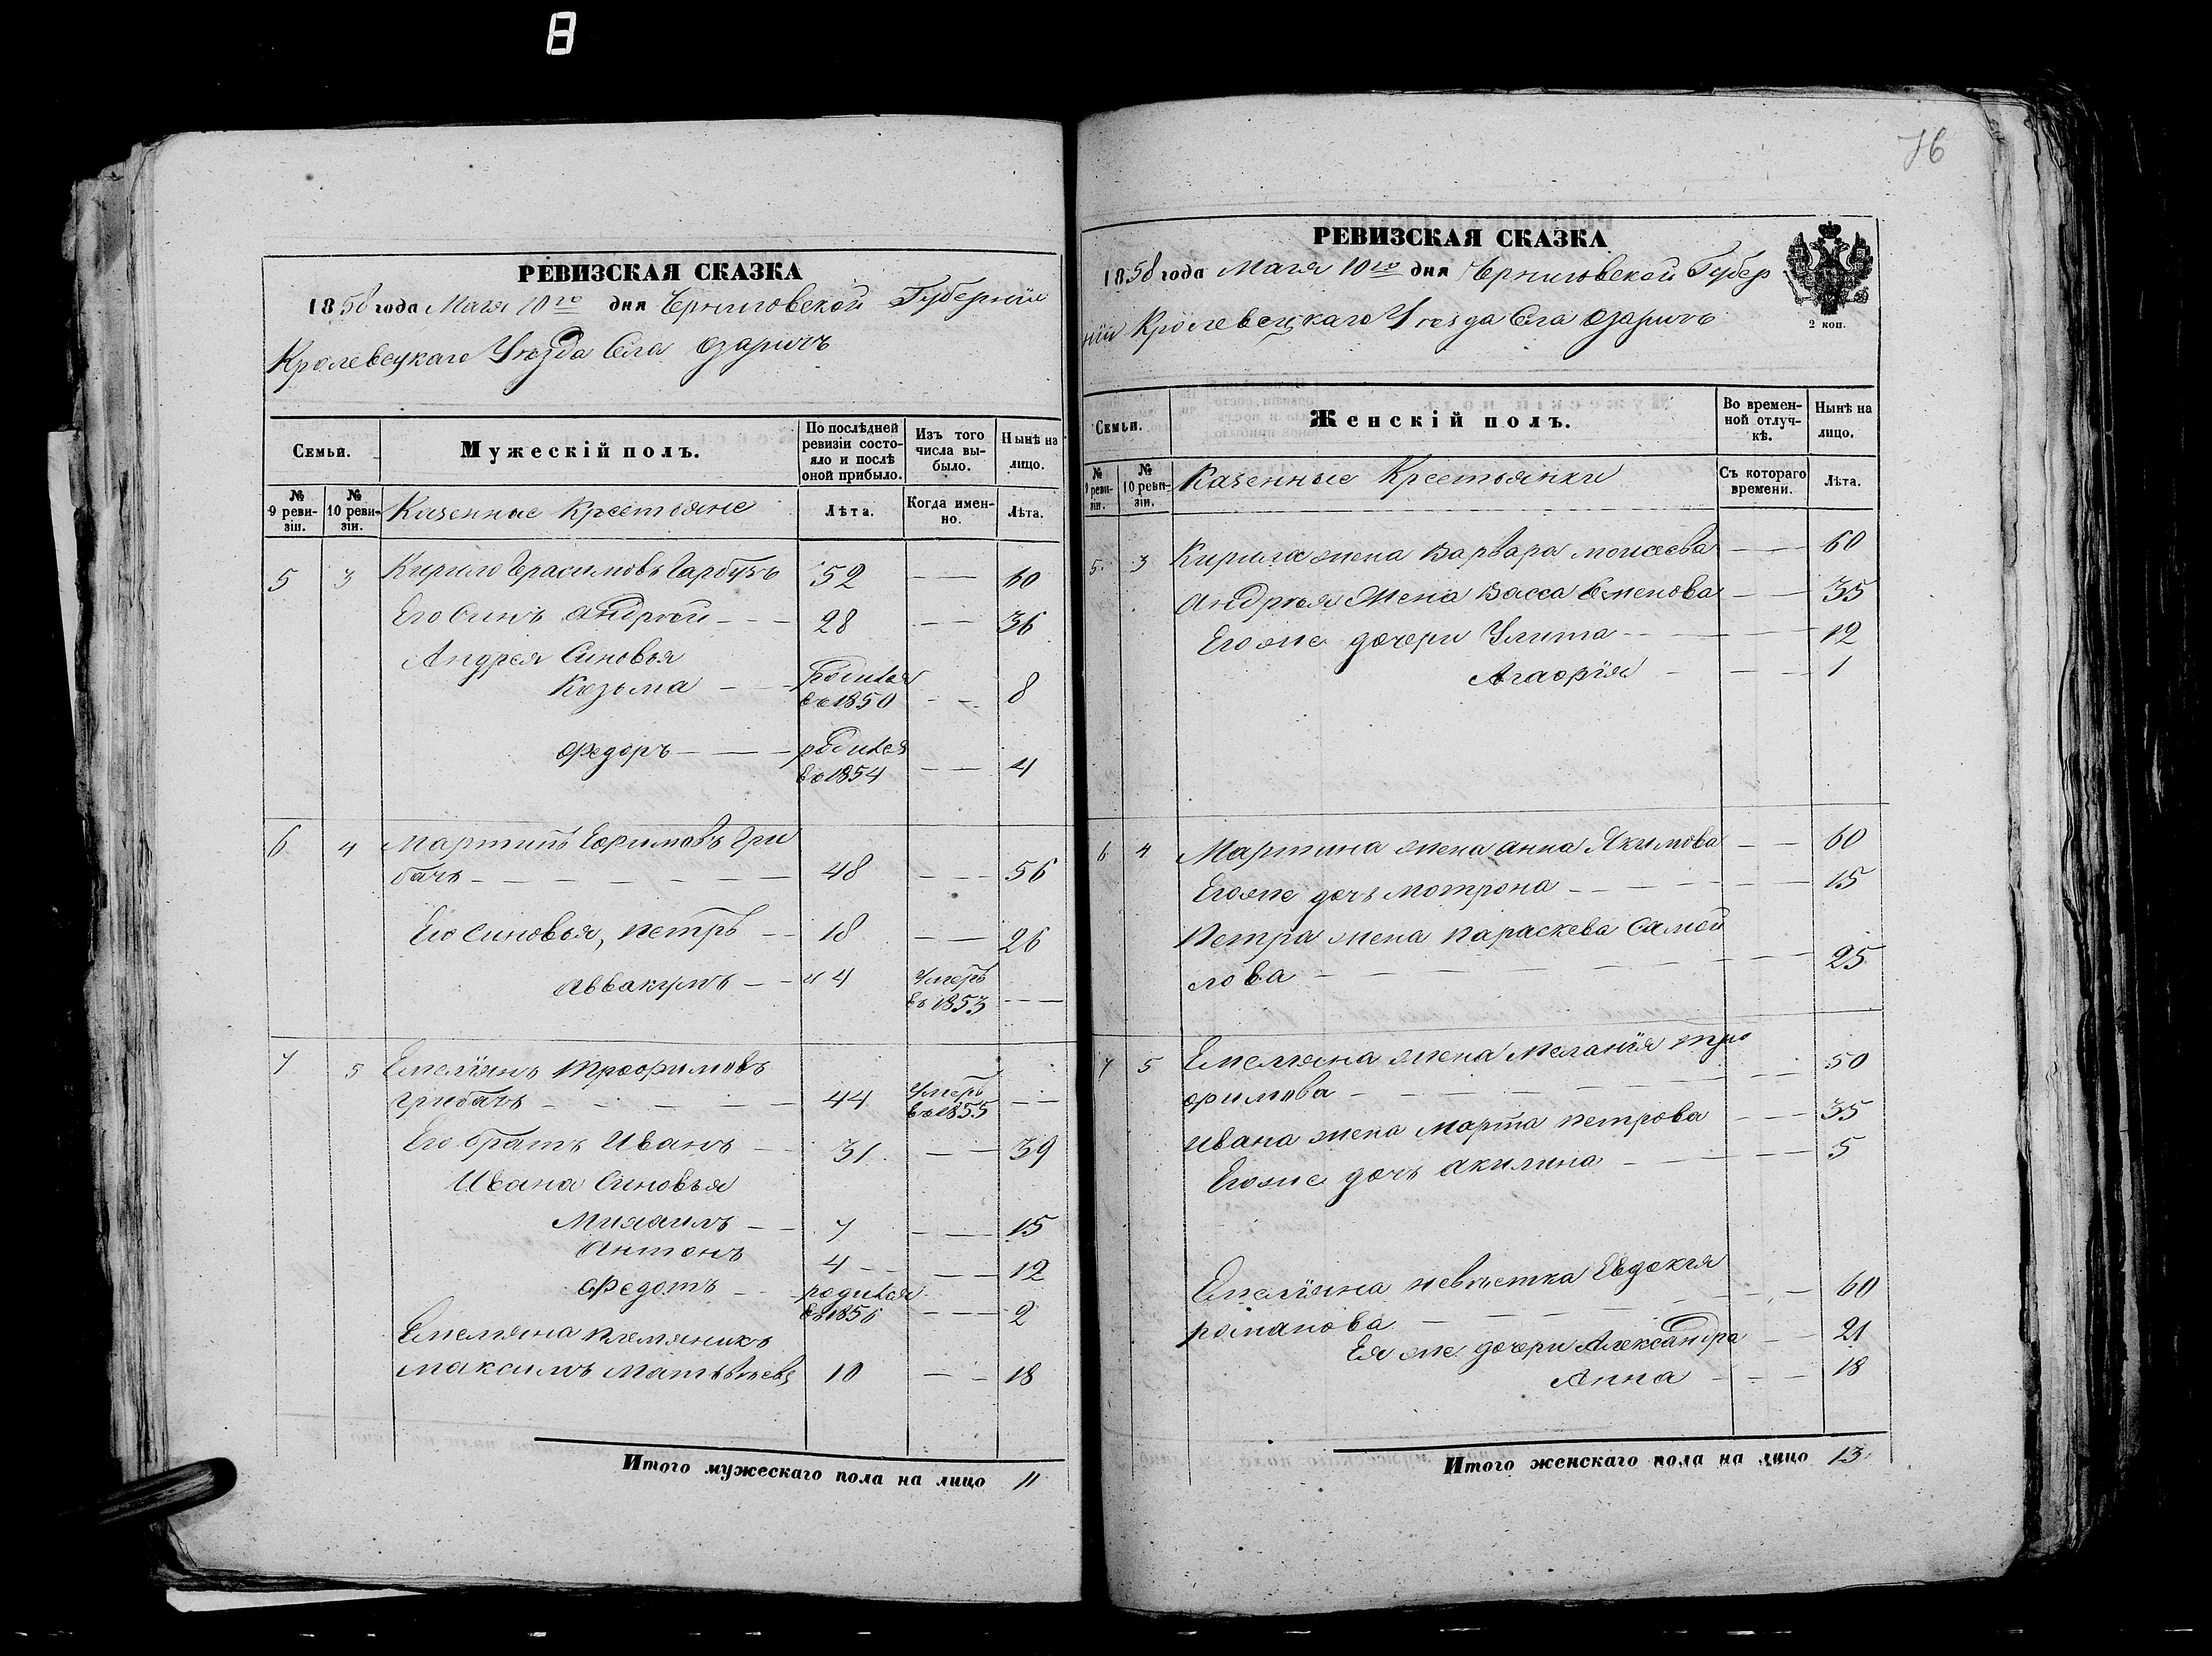 8
РЕВИЗСКАЯ СКАЗКА
1858 года Маія 10го дня Черниговской Губерніи
Кролевецкаго Уѣзда Села Озаричъ
Семьи.
Мужескій полъ.
По послѣдней ревизіи состояло и послѣ оной прибыло.
Изъ того числа выбыло.
Нынѣ на лицо.
№ 9 ревизіи.
№ 10 ревизіи.
Казенные Крестьяне
Лѣта.
Когда именно.
Лѣта.
5 3 Кирило Герасимовъ Гарбузъ 52 — — 60
Его Синъ Андрѣй — — 28 — — 36
Андрея Синовья
Козьма — — родился въ 1850 — — 8
Федоръ — — — родился въ 1854 — — 4
6 4 Мартинъ Ефимовъ Гри
бачъ — — — — — — 48 — — — 56
Его Синовья, Петръ — — 18 — — 26
Аввакумъ — — 44 Умеръ въ 1853 — —
7 5 Емелiянъ Трофимовъ
Грибачъ — — — — — 44 Умеръ въ 1855 — —
Его братъ Иванъ — — 31 — — 39
Ивана Синовья
Михаилъ — — 7 — — 15
Антонъ 4 — — — 12
Федотъ — — родился въ 1856 — — — 2
Емеляна племяникъ
Максимъ Матвѣевъ 10 — — 18
Итого мужескаго пола на лицо 11
76
РЕВИЗСКАЯ СКАЗКА
1858 года Маія 10го дня Черниговской Губер
ніи Кролевецкаго Уѣзда Села Озаричъ
2 коп.
Семьи.
Женскій полъ.
Во временной отлучкѣ.
Нынѣ на лицо.
№ 9 ревизіи.
№ 10 ревизіи.
Казенные Крестьянки
Съ котораго времени.
Лѣта.
5 3 Кирила жена Варвара Моисеева — — 60
Андрѣя жена Васса Семенова — — 35
Егоже дочери Улита — — — — 12
Агафія — — — 1
6 4 Мартина жена Анна Якимова — — 60
Егоже дочъ Мотрона — — — — — 15
Петра жена Параскева Самой
лова — — — — — — — — 25
7 5 Емеляна жена Меланія Тро
фимова — — — — — — 50
Ивана жена Марта Петрова — — — 35
Егоже дочъ Акилина — — — — 5
Емеліяна невѣстка Евдокія
Романова — — — — — — 60
Ея же дочери Александра — — 21
Анна — — — 18
Итого женскаго пола на лицо 13